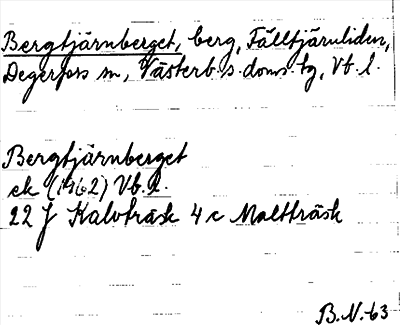 Bergtjärnberget, berg, Fälltjärnliden,
Degerfors sn, Västerb. s. doms. tg, Vb. l.
Bergtjärnberget
ek (1962) Vb. l.
22 J Kalvträsk 4 c Maltträsk
B.N. 63